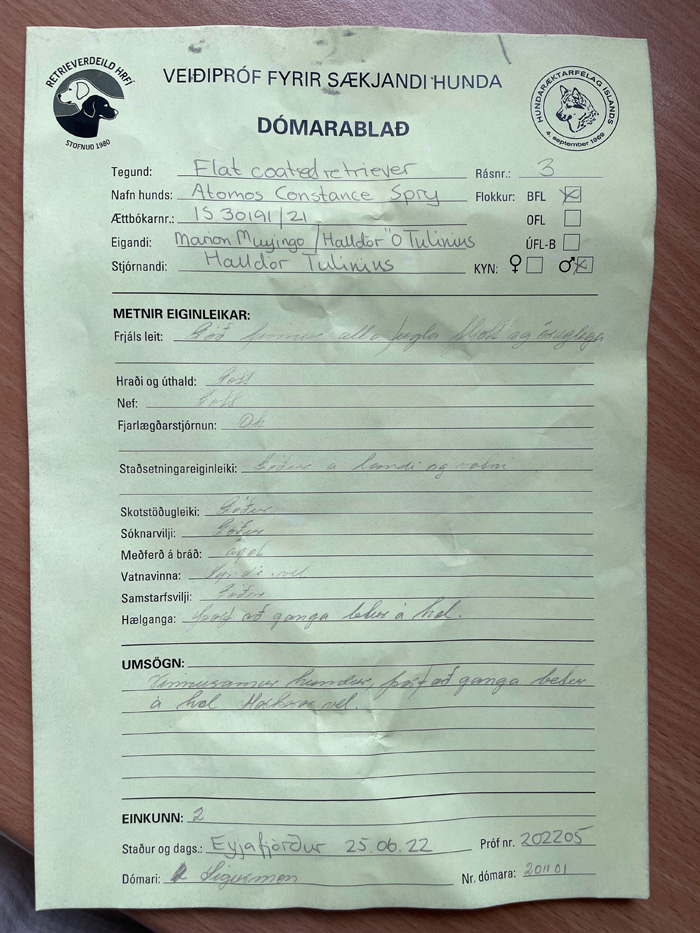 RETRIEVERDEILD HRFÍ
STOFNUÐ 1980
VEIÐIPRÓF FYRIR SÆKJANDI HUNDA
HUNDARÆKTARFÉLAG ÍSLANDS
4. september 1969
DÓMARABLAÐ
Tegund: Flat coated retriever Rásnr.: 3
Nafn hunds: Atomos Constance Spry Flokkur: BFL
Ættbókarnr.: IS 30191/21 OFL
Eigandi: Marion Halldor Ó Tulinius ÚFL-B
Stjórnandi: Halldor Tulinius KYN: ♀ ♂
METNIR EIGINLEIKAR:
Frjáls leit: Góð finnur alla fugla og
Hraði og úthald: Gott
Nef: Gott
Fjarlægðarstjórnun: Ok
Staðsetningareiginleiki: Góður á landi og vatni
Skotstöðugleiki: Góður
Sóknarvilji: Góður
Meðferð á bráð:
Vatnavinna: vel
Samstarfsvilji: Góður
Hælganga: þarf að ganga betur á hæl.
UMSÖGN:
Vinnusamur hundur, þarf að ganga betur
á hæl vel.
EINKUNN: 2
Staður og dags.: Eyjafjörður 25.06.22 Próf nr. 202205
Dómari: Nr. dómara: 201101